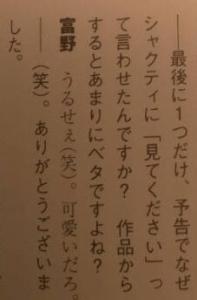 ――最後に1つだけ、予告でなぜ
シャクティに「見てください」っ
て言わせたんですか?　作品から
するとあまりにベタですよね?
富野　うるせぇ(笑)。可愛いだろ。
――(笑)。ありがとうございま
した。